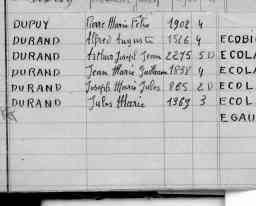 DUPUY Pierre Marie 1902 4
DURAND Alfred Auguste 1566 4 ECOBI
DURAND Arthur Joseph Jean 2275 5D ECOLA
DURAND Jean Marie 1838 4 ECOLA
DURAND Joseph Marie Jules 865 2D ECOL
DURAND Jules Marie 1969 3 ECOL
EGAU